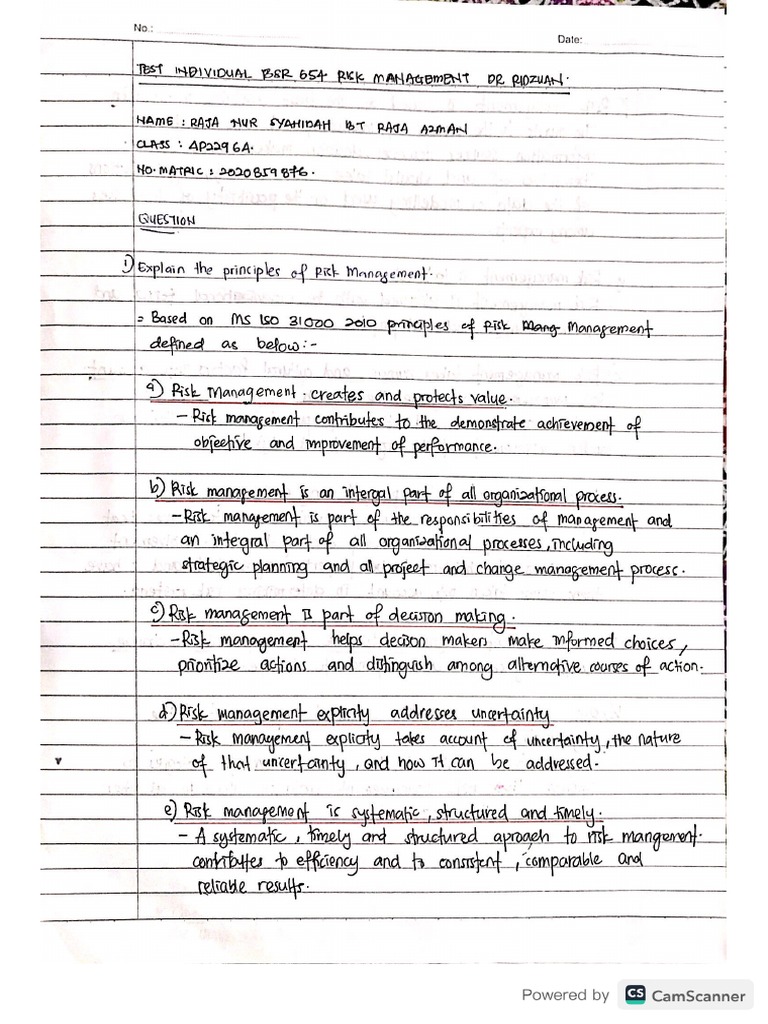 No.:
Date:
TEST INDIVIDUAL BSR 654 RISK MANAGEMENT DR RIDZUAN.
NAME : RAJA NUR SYAHIDAH BT RAJA AZMAN
CLASS : AP2296A.
NO. MATRIC : 2020859876.
QUESTION
1) Explain the principles of Risk Management.
= Based on MS ISO 31000 2010 principles of Risk Mang Management
defined as below:-
a) Risk Management creates and protects value.
- Risk management contributes to the demonstrate achievement of
objective and improvement of performance.
b) Risk management is an intergal part of all organizational process.
- Risk management is part of the responsibilities of management and
an integral part of all organizational processes, including
strategic planning and all project and change management process.
c) Risk management is part of decision making.
- Risk management helps decison makers make informed choices,
prioritize actions and distinguish among alternative courses of action.
d) Risk management explicity addresses uncertainty
- Risk management explicity takes account of uncertainty, the nature
of that uncertainty, and how it can be addressed.
e) Risk management is systematic, structured and timely.
- A systematic, timely and structured aproach to risk mangement
contributes to efficiency and to consistent, comparable and
reliable results.
Powered by CS CamScanner